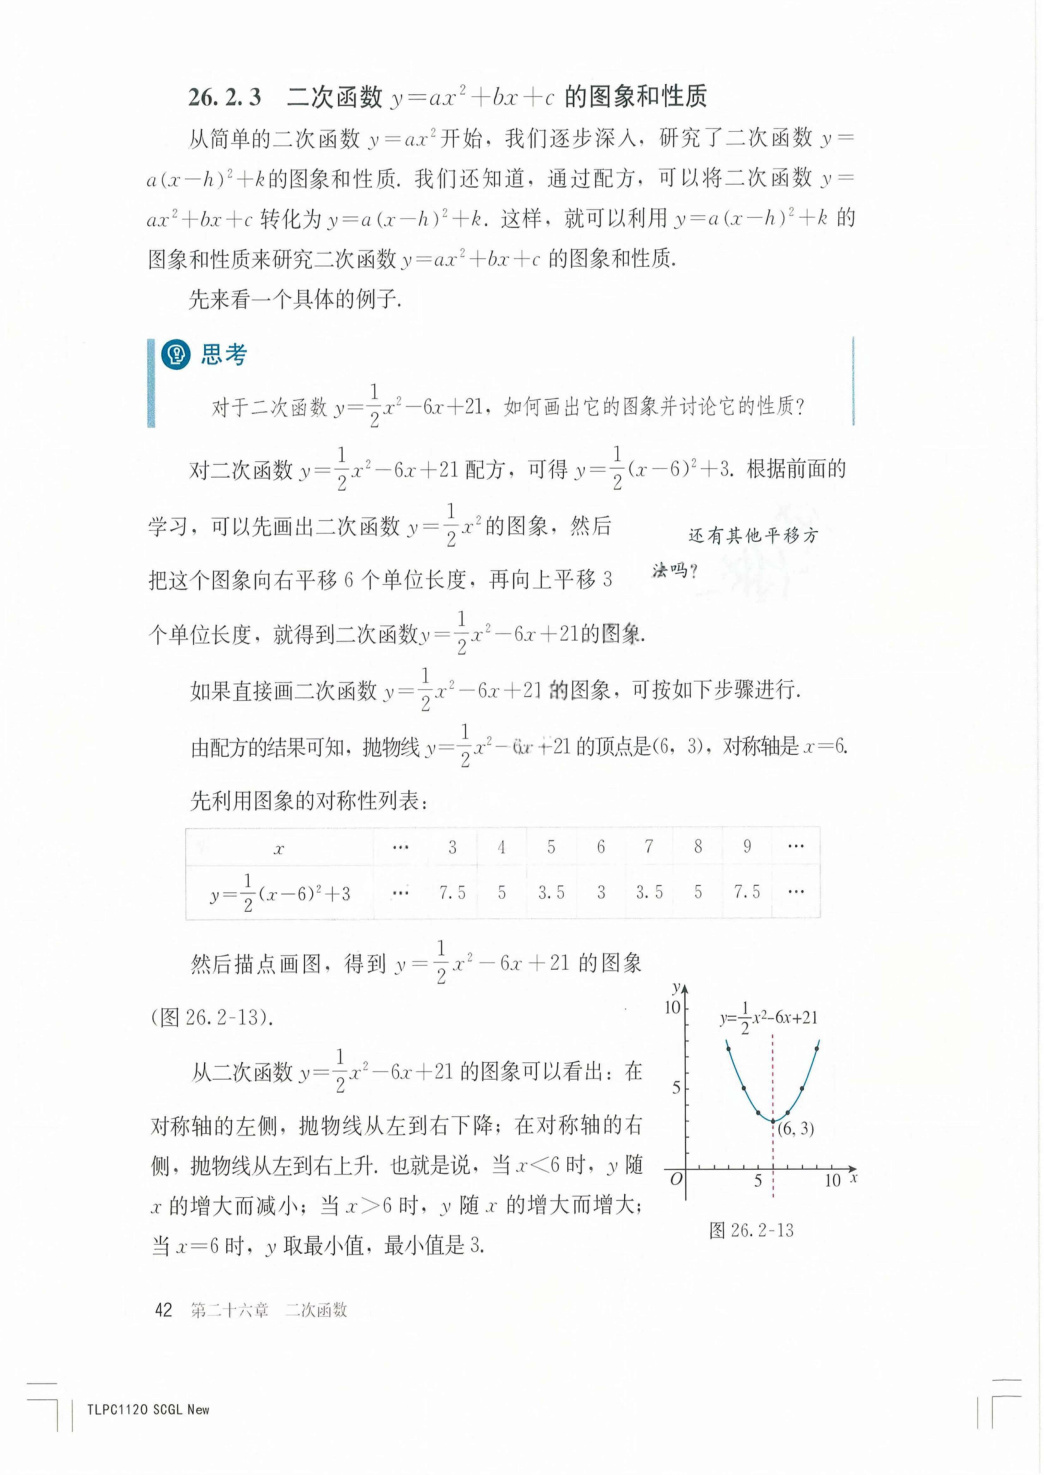 26.2.3 二次函数 y=ax²+bx+c 的图象和性质
从简单的二次函数 y=ax²开始，我们逐步深入，研究了二次函数 y=
a(x-h)²+k的图象和性质. 我们还知道，通过配方，可以将二次函数 y=
ax²+bx+c 转化为 y=a(x-h)²+k. 这样，就可以利用 y=a(x-h)²+k 的
图象和性质来研究二次函数 y=ax²+bx+c 的图象和性质.
先来看一个具体的例子.
思考
对于二次函数 y=1/2x²-6x+21，如何画出它的图象并讨论它的性质？
对二次函数 y=1/2x²-6x+21 配方，可得 y=1/2(x-6)²+3. 根据前面的
学习，可以先画出二次函数 y=1/2x²的图象，然后
把这个图象向右平移 6 个单位长度，再向上平移 3
个单位长度，就得到二次函数y=1/2x²-6x+21的图象.
还有其他平移方
法吗？
如果直接画二次函数 y=1/2x²-6x+21 的图象，可按如下步骤进行.
由配方的结果可知，抛物线 y=1/2x²-6x+21 的顶点是(6，3)，对称轴是 x=6.
先利用图象的对称性列表：
x … 3 4 5 6 7 8 9 …
y=1/2(x-6)²+3 … 7.5 5 3.5 3 3.5 5 7.5 …
然后描点画图，得到 y=1/2x²-6x+21 的图象
(图 26.2-13).
从二次函数 y=1/2x²-6x+21 的图象可以看出：在
对称轴的左侧，抛物线从左到右下降；在对称轴的右
侧，抛物线从左到右上升. 也就是说，当 x<6 时，y 随
x 的增大而减小；当 x>6 时，y 随 x 的增大而增大；
当 x=6 时，y 取最小值，最小值是 3.
y
10
y=1/2x²-6x+21
5
(6, 3)
O 5 10 x
图 26.2-13
42 第二十六章 二次函数
TLPC1120 SCGL New